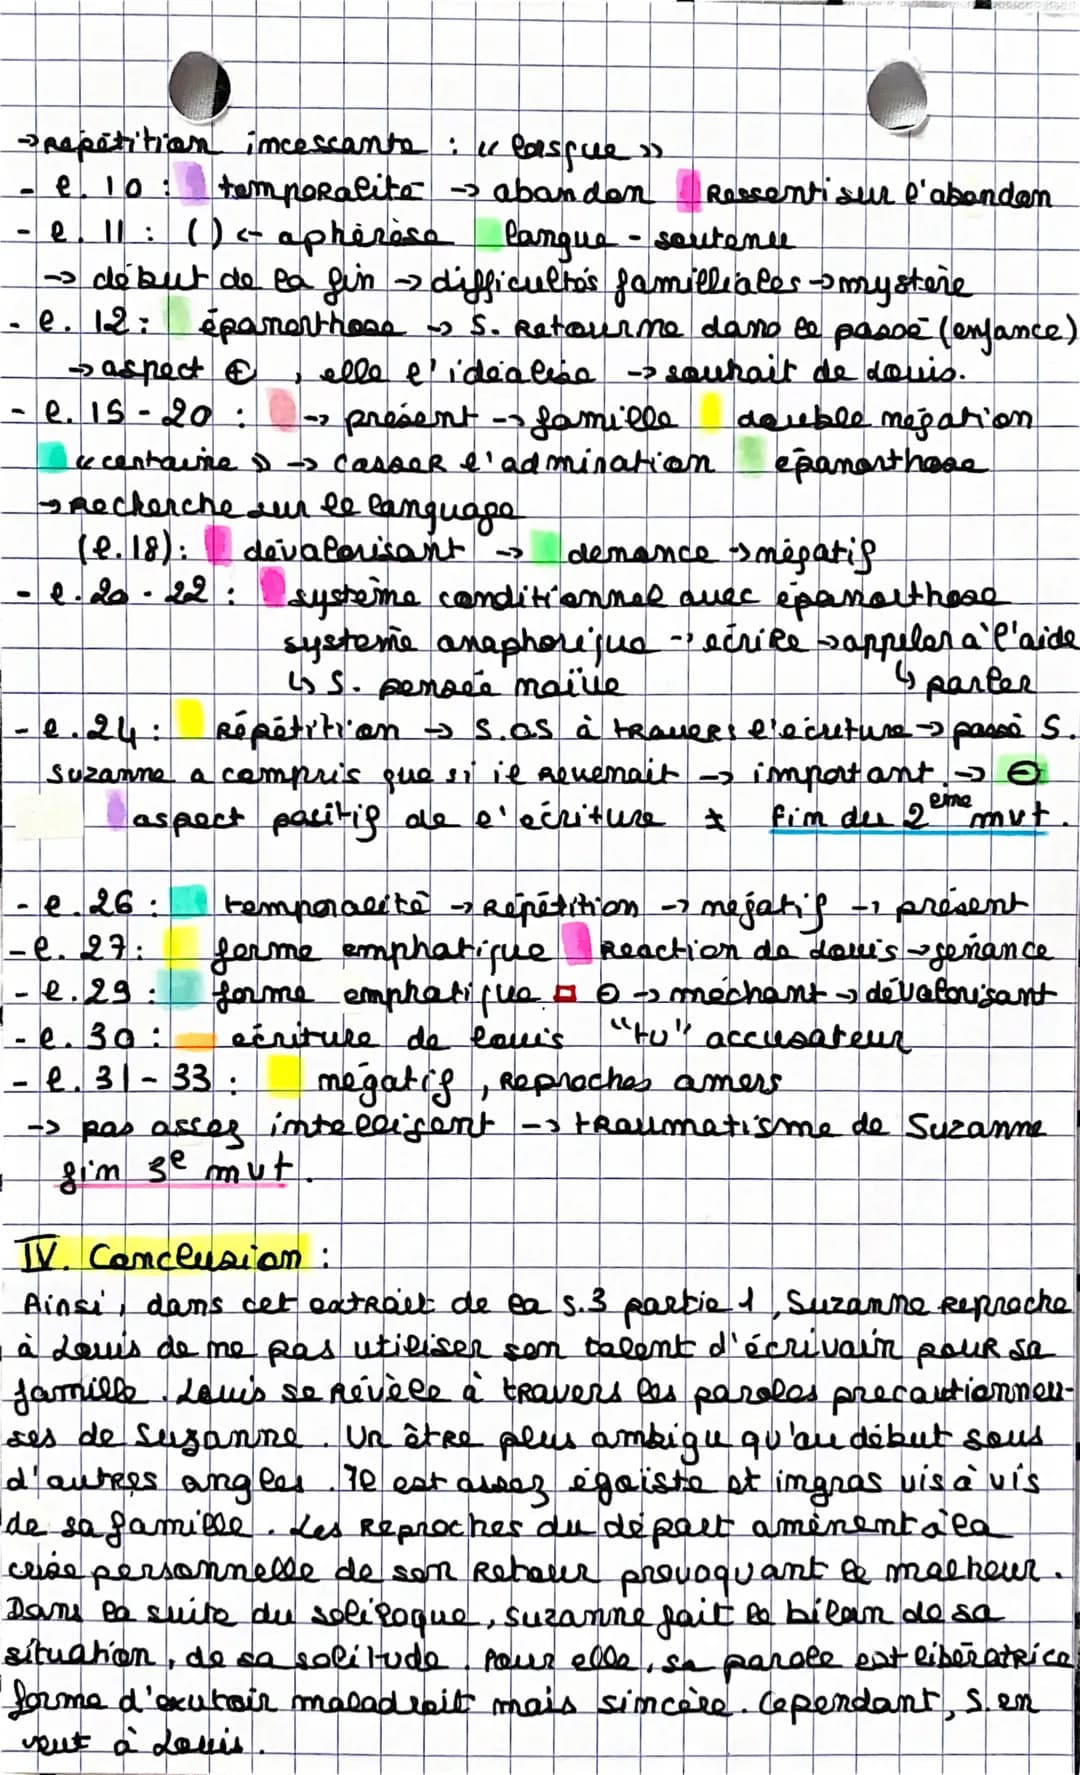 → répétition incessante : « lorsque »
- l. 10 : temporalité → abandon Ressenti sur l'abandon
- l. 11 : () ← aphérèse langue - soutenue
→ début de la fin → difficultés familliales → mystère
- l. 12 : épanorthose → S. Retourne dans le passé (enfance)
→ aspect ⊕, elle l'idéalise → souhait de Louis.
- l. 15 - 20 : → présent → famille double négation
« centaine » → casser l'admination épanorthose
→ Recherche sur le language
(l.18) : dévalorisant → dénonce → négatif
- l. 20 - 22 : système conditionnel avec épanorthose
système anaphorique → écrire → appeler à l'aide
↳ S. pensée naïve ↳ parler
- l. 24 : Répétition → S.OS à travers l'écriture → passé S.
Suzanne a compris que si il revenait → important → ⊖
aspect pacitif de l'écriture * fin du 2ème mvt.
- l. 26 : temporalité → Répétition → négatif → présent
- l. 27 : forme emphatique Réaction de Louis → gênance
- l. 29 : forme emphatique ⊖ → méchant → dévalorisant
- l. 30 : écriture de Louis "tu" accusateur
- l. 31 - 33 : négatif, Reproches amers
→ pas assez intelligent → traumatisme de Suzanne
fin 3e mvt.
IV. Conclusion :
Ainsi, dans cet extrait de la s.3 partie 1, Suzanne Reproche
à Louis de ne pas utiliser son talent d'écrivain pour sa
famille. Louis se révèle à travers les paroles precautionneu-
ses de Suzanne. Un être plus ambigu qu'au début sous
d'autres angles. Il est assez égoïste et ingras vis à vis
de sa famille. Les Reproches du départ amènent à la
crise personnelle de son Retour provoquant le malheur.
Dans la suite du soliloque, Suzanne fait le bilan de sa
situation, de sa solitude. Pour elle, sa parole est libératrice
forme d'exutoir maladroit mais sincère. Cependant, S. en
veut à Louis.